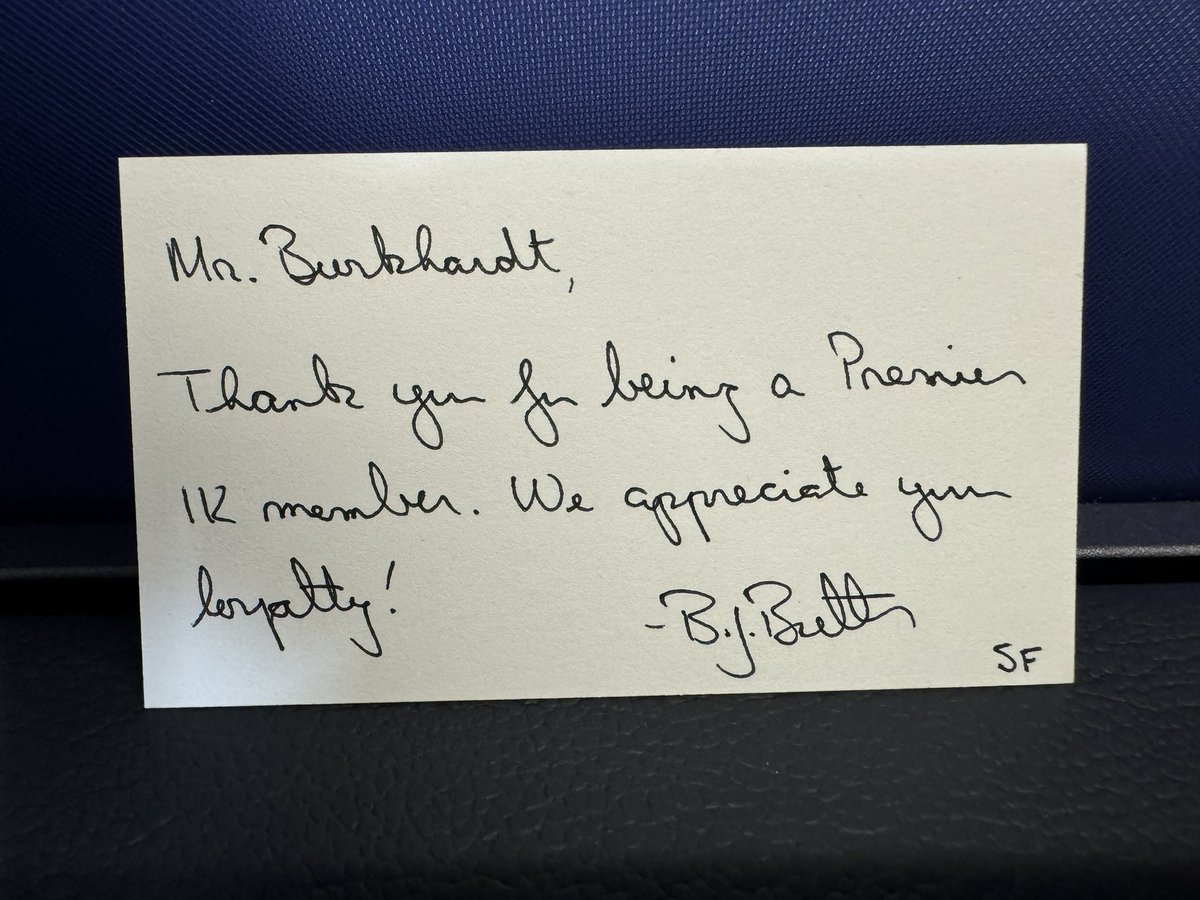 Mr. Burkhardt,
Thank you for being a Premier
1K member. We appreciate your
loyalty!
-B.J.
5F